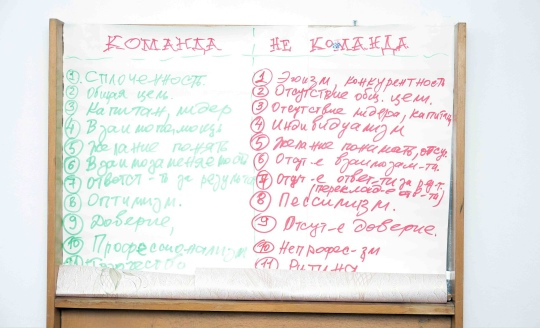 КОМАНДА
1. Сплоченность.
2 Общая цель.
3 Капитан, лидер
4 Взаимопомощь
5 Желание понять
6 Взаимозаменяемость
7 ответст-ть за результат
8 Оптимизм.
9 Доверие,
10 Профессионализм
11 Творчество
НЕ КОМАНДА
1 Эгоизм, конкурентность
2 Отсутствие общ. цели.
3 Отсутствие лидера, капитана
4 Индивидуализм
5 Желание понимать, отсу.
6 Отсут-е взаимозам-ти.
7 Отсут-е ответ-ти за рез-т.
(переклад-е отв-ти)
8 Пессимизм.
9 Отсут-е доверие.
10 Непрофес-зм
11 Рутина